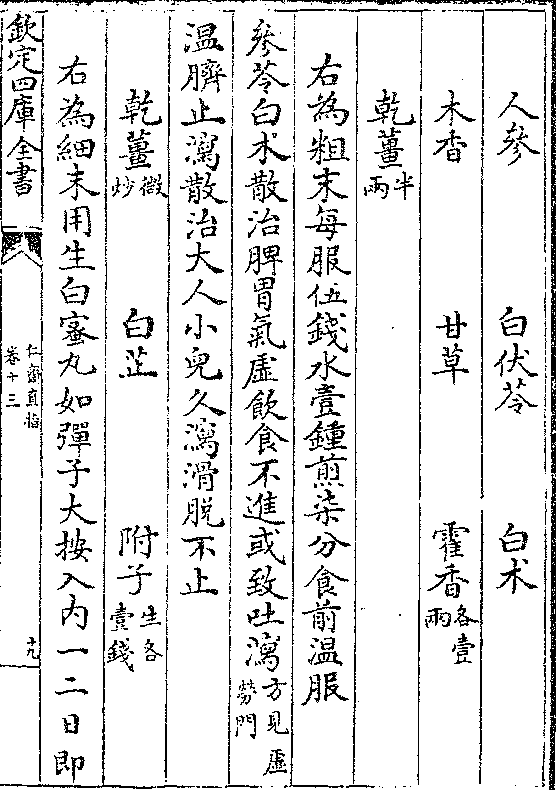 人參　白伏苓　白术
木香　甘草　霍香各壹兩
乾薑半兩
右為粗末每服伍錢水壹鍾煎柒分食前温服
參苓白术散治脾胃氣虛飲食不進或致吐瀉方見虛勞門
温臍止瀉散治大人小兒久瀉滑脱不止
乾薑微炒　白芷　附子生各壹錢
右為細末用生白蜜丸如彈子大按入内一二日即
欽定四庫全書
仁齋直指
卷十三
十九